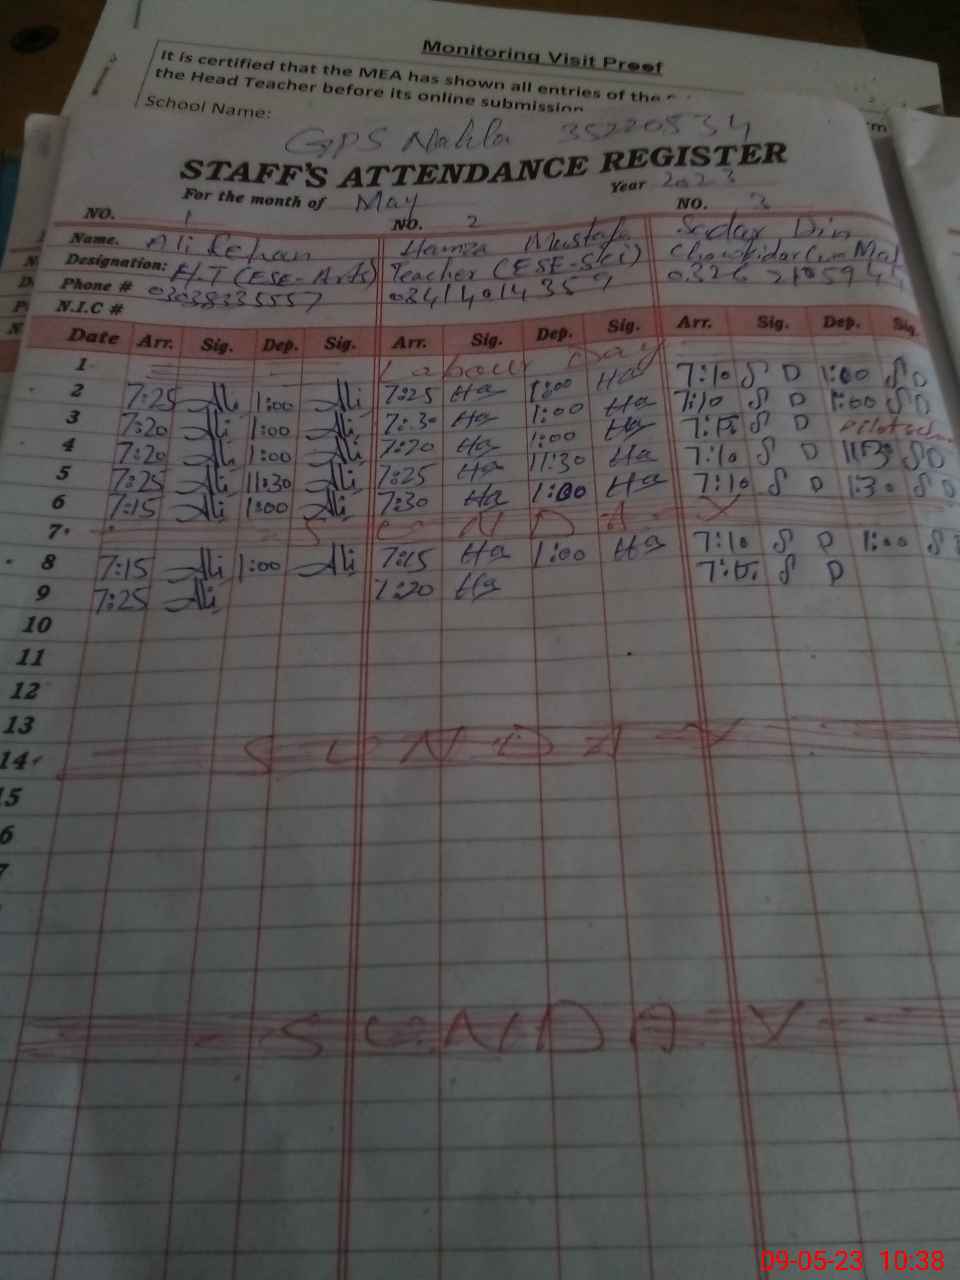 Monitoring Visit Proof
It is certified that the MEA has shown all entries of the
the Head Teacher before its online submission
School Name:
GPS 35220534
STAFF'S ATTENDANCE REGISTER
For the month of May Year 2023
NO. 1 NO. 2 NO. 3
Name. Ali Rehan Hamza Mustafa Sadar Din
Designation: H/T (ESE-Arts) Teacher (ESE-Sci) Chowkidar Cum Mali
Phone # 03038335557 03414014359
N.I.C #
Date Arr. Sig. Dep. Sig. Arr. Sig. Dep. Sig. Arr. Sig. Dep. Sig.
1 Labour Day 7:10 S D 1:00 S D
2 7:25 Ali 1:00 Ali 7:25 Ha 1:00 Ha 7:10 S D 1:00 S D
3 7:20 Ali 1:00 Ali 7:30 Ha 1:00 Ha S D
4 7:20 Ali 1:00 Ali 7:20 Ha 1:00 Ha 7:10 S D 11:30 S D
5 7:25 Ali 11:30 Ali 7:25 Ha 11:30 Ha 7:10 S D 1:30 S D
6 7:15 Ali 1:00 Ali 7:30 Ha 1:00 Ha
7 SUNDAY
8 7:15 Ali 1:00 Ali 7:15 Ha 1:00 Ha 7:10 S D 1:00 S
9 7:25 Ali 7:20 Ha S D
10
11
12
13
14 SUNDAY
15
6
7
SUNDAY
09-05-23 10:38